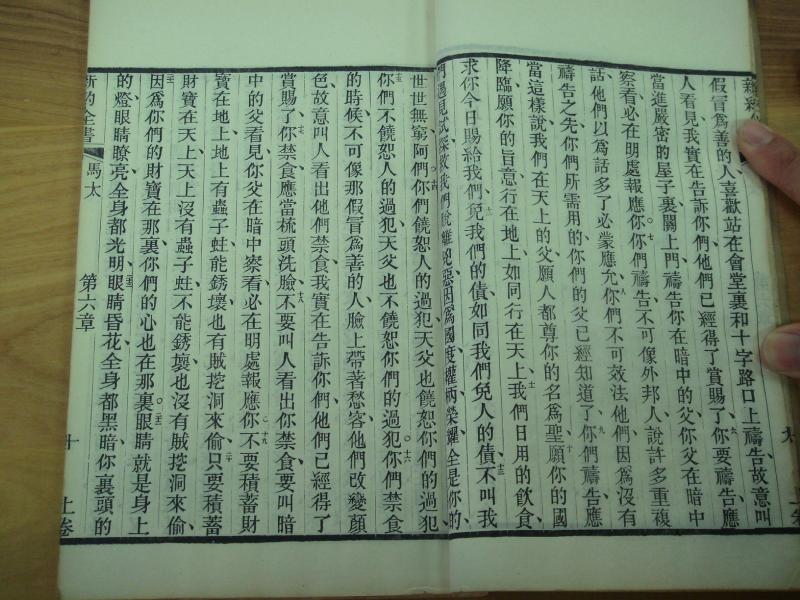 假冒爲善的人喜歡站在會堂裏和十字路口上禱告故意叫
人看見我實在告訴你們他們已經得了賞賜了六你要禱告應
當進嚴密的屋子裏關上門禱告你在暗中的父你父在暗中
察看必在明處報應你七你們禱告不可像外邦人說許多重複
話他們以爲話多了必蒙應允八你們不可效法他們因爲沒有
禱告之先你們所需用的你們的父已經知道了九你們禱告應
當這樣說我們在天上的父願人都尊你的名爲聖十願你的國
降臨願你的旨意行在地上如同行在天上十一我們日用的飲食
求你今日賜給我們十二免我們的債如同我們免人的債十三不叫我
們遇見試探救我們脫離兇惡因爲國度權柄榮耀全是你的
世世無窮阿們十四你們饒恕人的過犯天父也饒恕你們的過犯
十五你們不饒恕人的過犯天父也不饒恕你們的過犯十六你們禁食
的時候不可像那假冒爲善的人臉上帶著愁容他們改變顏
色故意叫人看出他們禁食我實在告訴你們他們已經得了
賞賜了十七你禁食應當梳頭洗臉十八不要叫人看出你禁食要叫暗
中的父看見你父在暗中察看必在明處報應你十九不要積蓄財
寶在地上地上有蟲子蛀能銹壞也有賊挖洞來偷二十只要積蓄
財寶在天上天上沒有蟲子蛀不能銹壞也沒有賊挖洞來偷
因爲你們的財寶在那裏你們的心也在那裏眼睛就是身上
的燈眼睛瞭亮全身都光明眼睛昏花全身都黑暗你裏頭的
新約全書 馬太 第六章 十 上卷